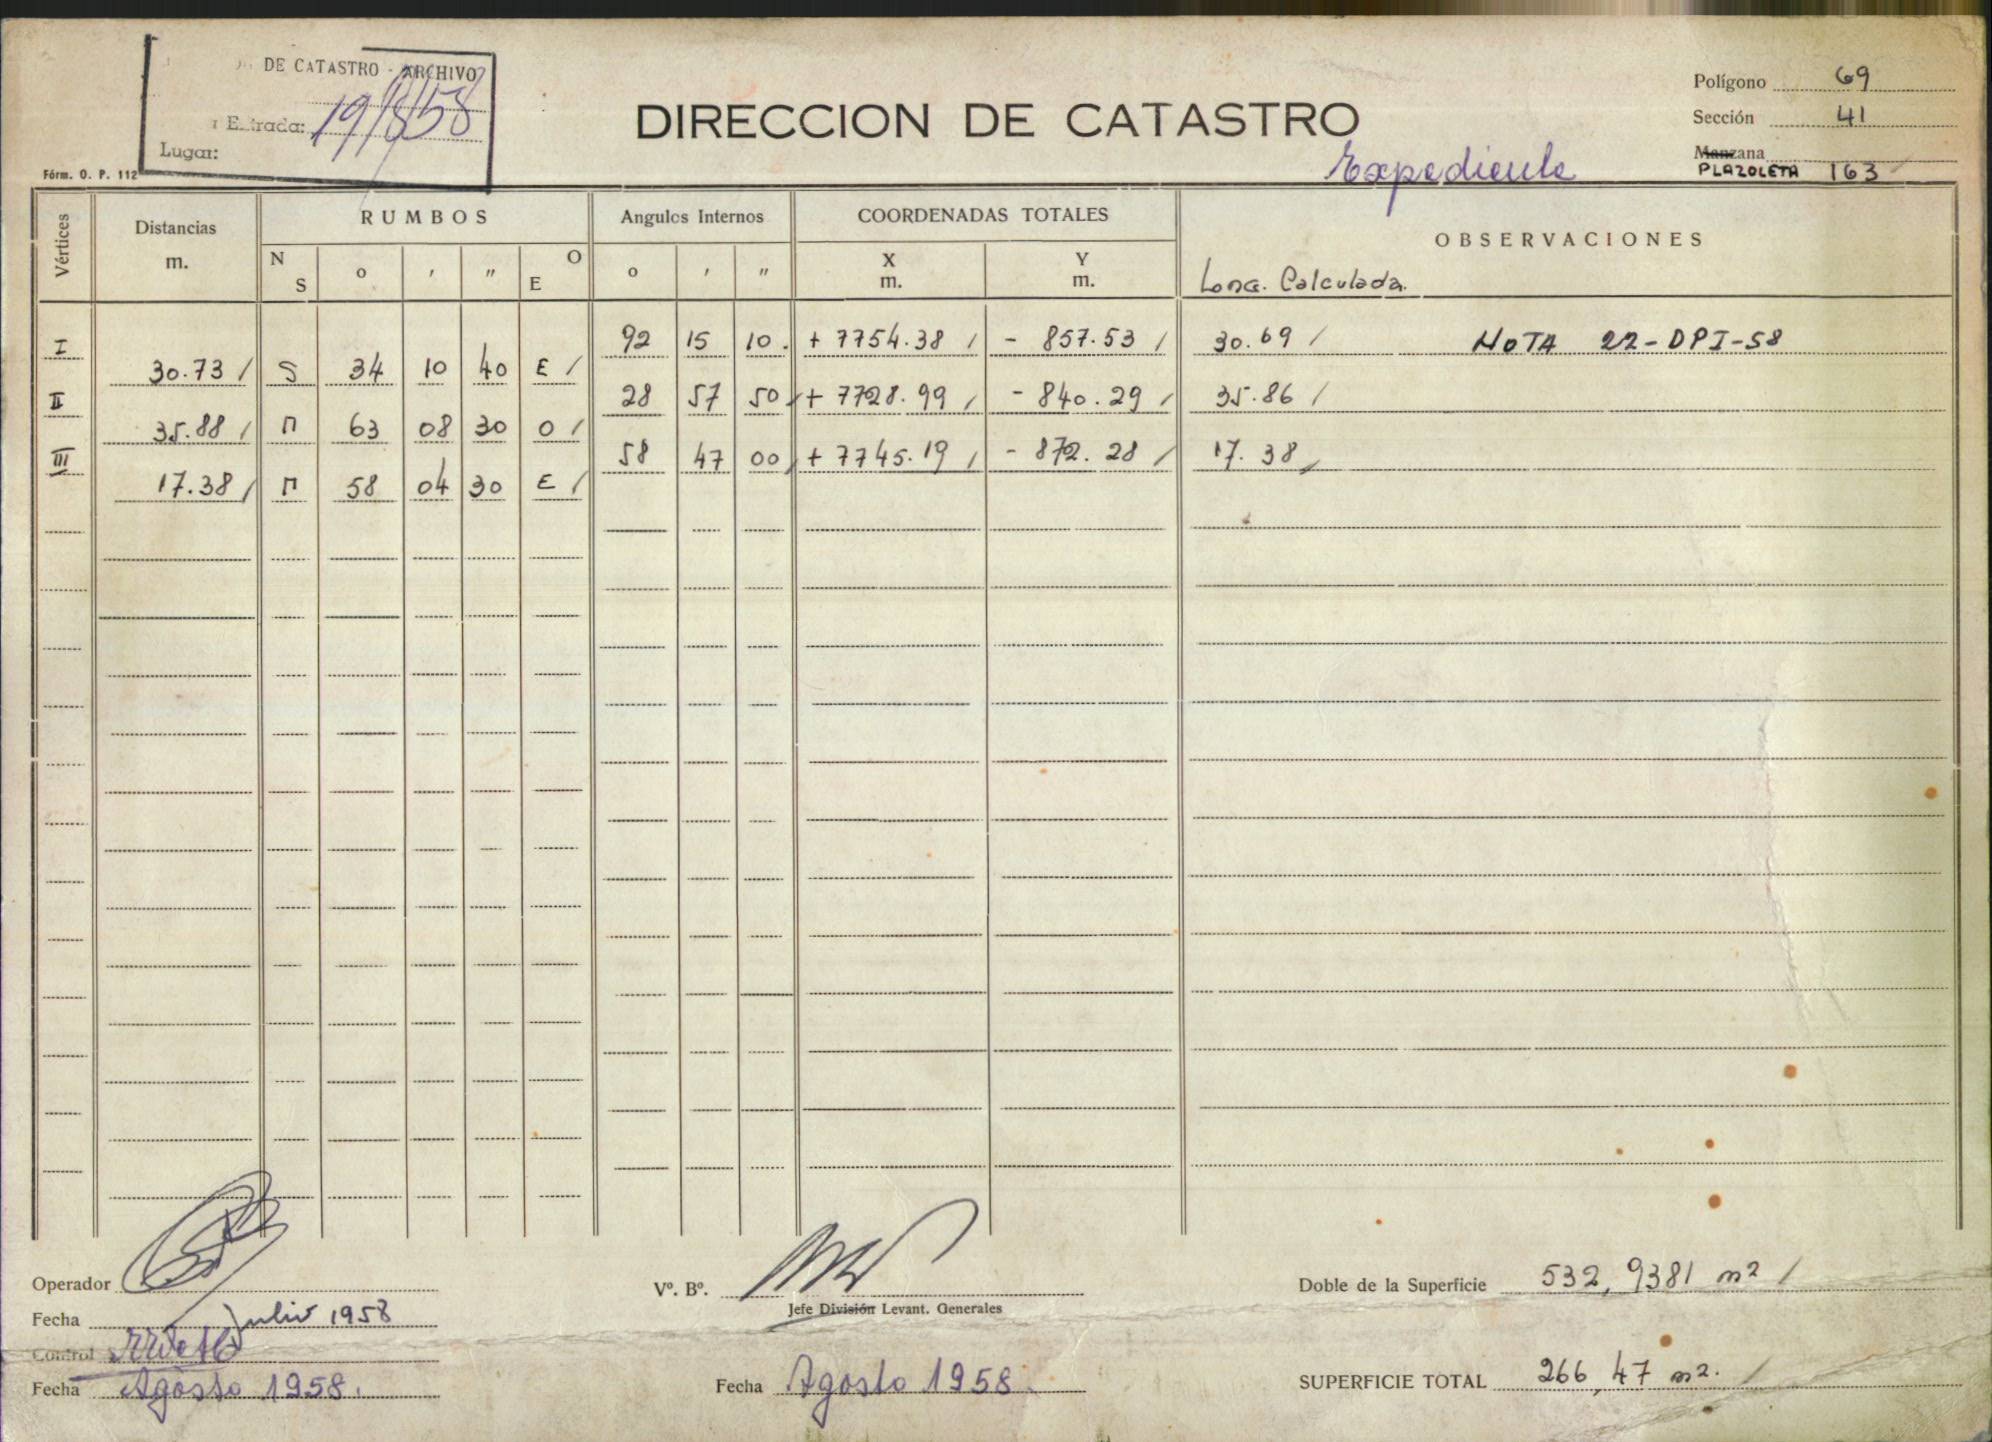 DE CATASTRO - ARCHIVO
Entrada: 19/8/58
Lugar:
Fórm. O. P. 112
DIRECCION DE CATASTRO
Expediente
Polígono 69
Sección 41
Manzana
PLAZOLETA 163
Vértices
Distancias m.
RUMBOS
N S o ' " O E
Angulos Internos
o ' "
COORDENADAS TOTALES
X m. Y m.
OBSERVACIONES
Long. Calculada.
I 92 15 10. + 7754.38 / - 857.53 / 30.69 / NOTA 22-DPI-58
30.73 / S 34 10 40 E /
II 28 57 50 / + 7728.99 / - 840.29 / 35.86 /
35.88 / N 63 08 30 O /
III 58 47 00 / + 7745.19 / - 872.28 / 17.38 /
17.38 / N 58 04 30 E /
Operador
Fecha Julio 1958
Control
Fecha Agosto 1958.
Vº. Bº.
Jefe División Levant. Generales
Fecha Agosto 1958.
Doble de la Superficie 532,9381 m2 /
SUPERFICIE TOTAL 266,47 m2. /